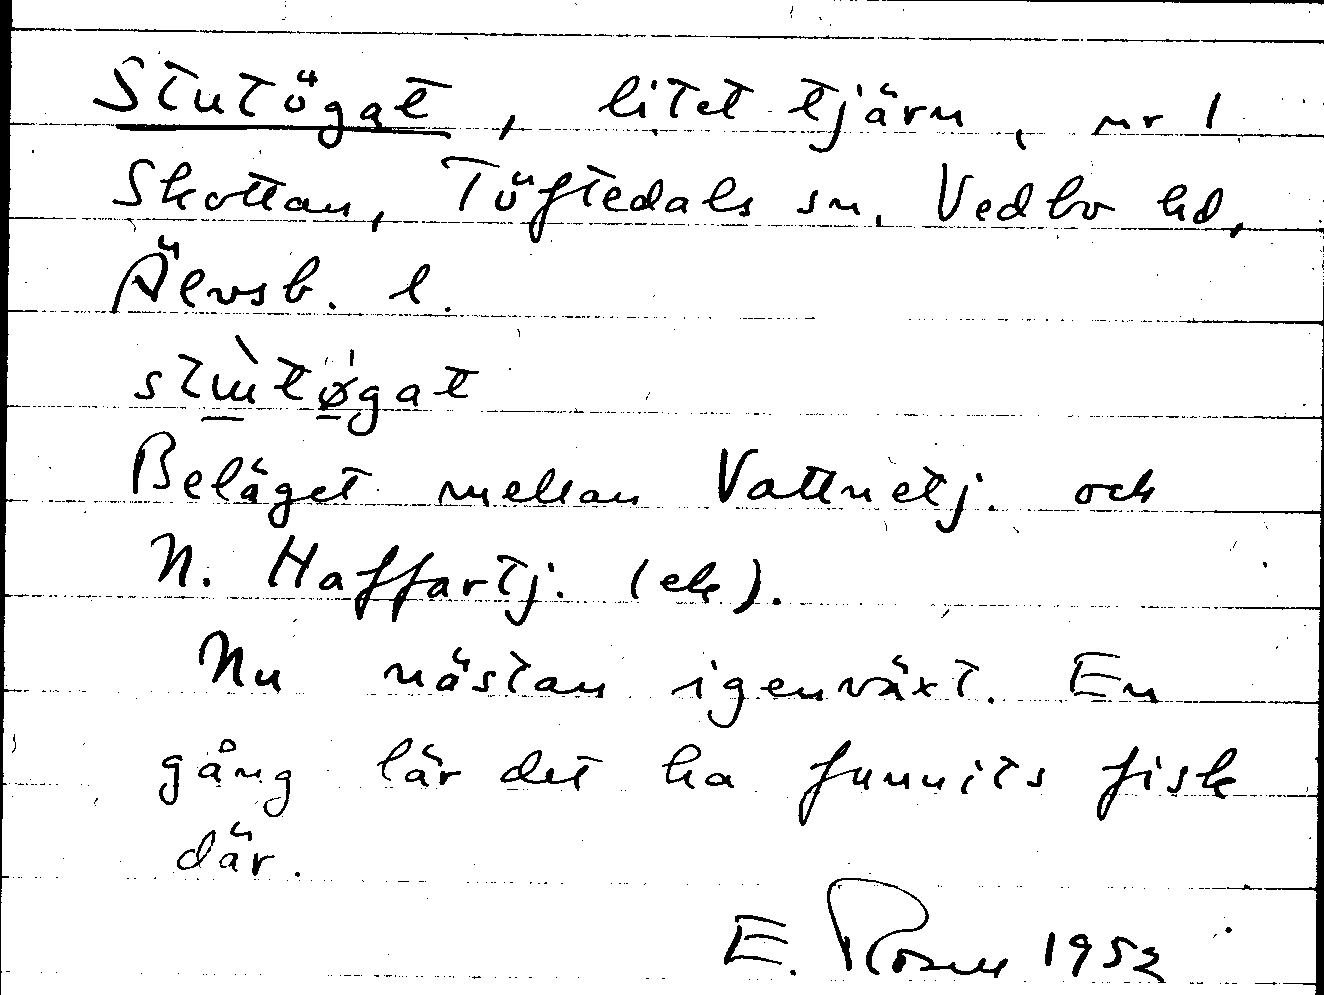 Stutögat, litet tjärn, nr 1
Skottan, Töftedals sn. Vedbo hd,
Älvsb. l.
stɯ̀tø̀gat
Beläget mellan Vattnetj. och
N. Haffartj. (ek).
Nu nästan igenväxt. En
gång lär det ha funnits fisk
där.
E. Rosell 1952